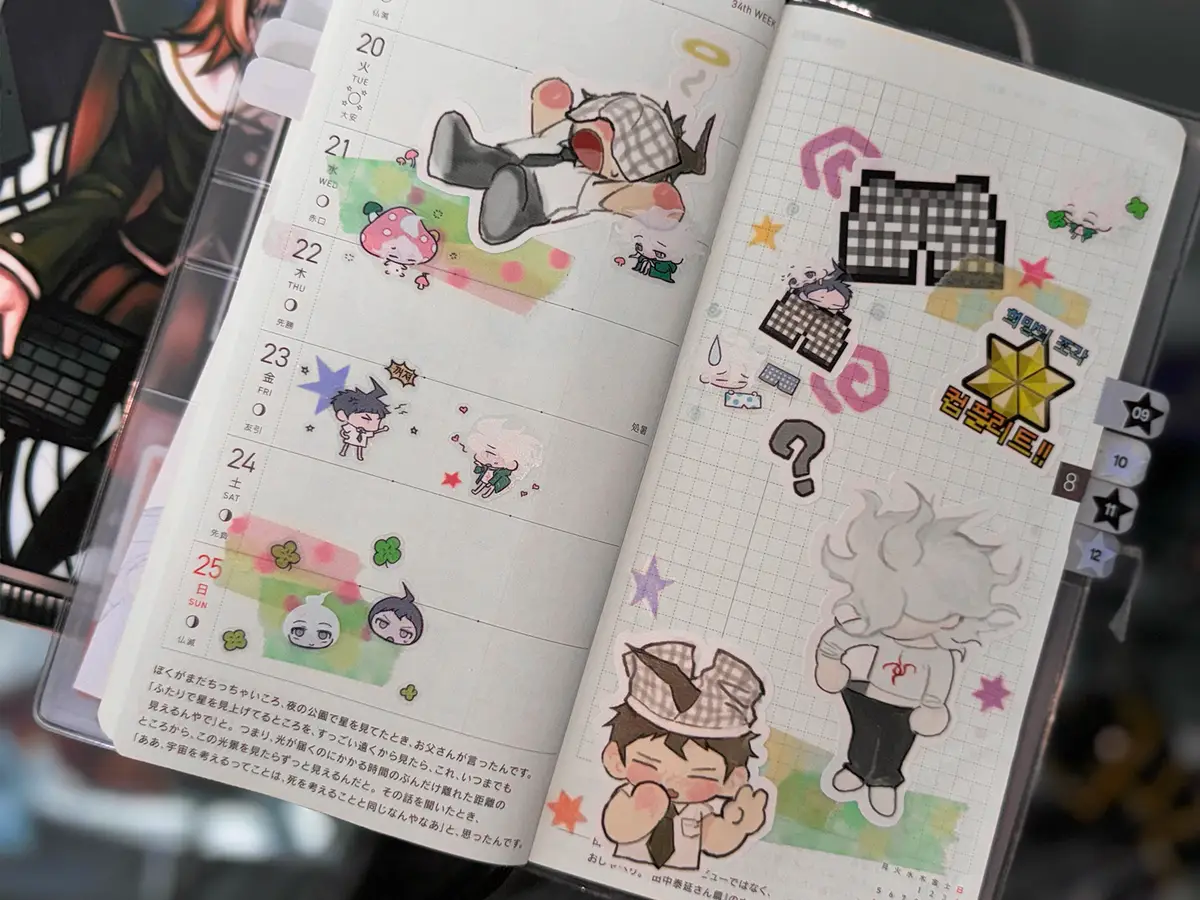 仏滅
34th WEEK
20
火
TUE
大安
21
水
WED
赤口
22
木
THU
先勝
23
金
FRI
友引
꺼져
処暑
24
土
SAT
先負
25
日
SUN
仏滅
ぼくがまだちっちゃいころ、夜の公園で星を見てたとき、お父さんが言ったんです。
「ふたりで星を見上げてるところを、すっごい遠くから見たら、これ、いつまでも
見えるんやで」と。つまり、光が届くのにかかる時間のぶんだけ離れた距離の
ところから、この光景を見たらずっと見えるんだと。その話を聞いたとき、
「ああ、宇宙を考えるってことは、死を考えることと同じなんやなあ」と、思ったんです。
희망의 조각
컴플리트!!
?
09
10
8
11
12
ューではなく、
田中泰延さん篇」の
月 火 水 木 金 土 日